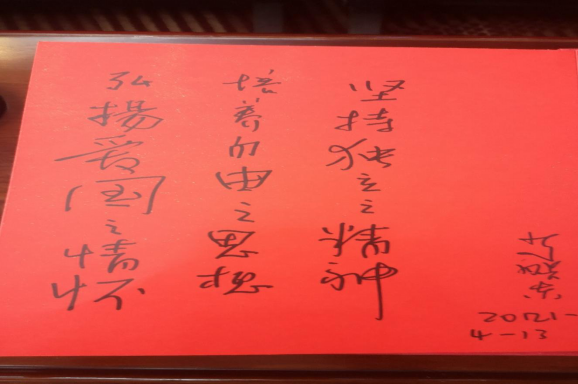 弘揚爱国之情怀
培养自由之
坚持独立之精神
2021-
4-13